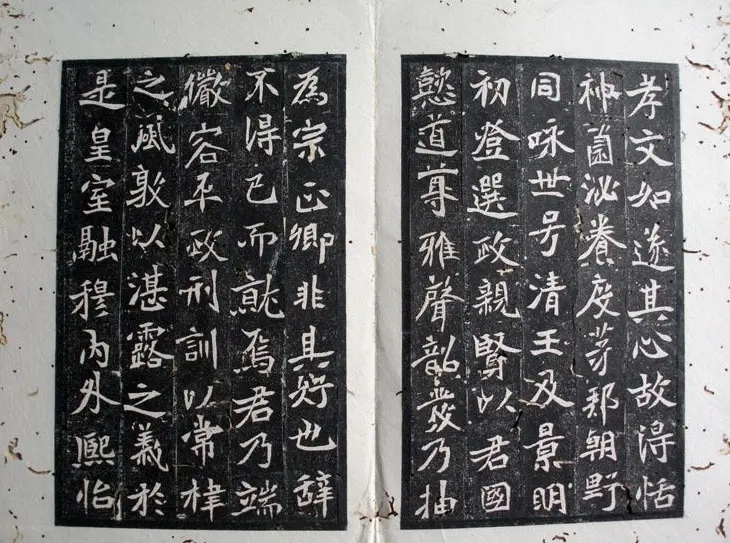 孝文如遂其心故得恬
神薗泌養度茅邦朝野
同咏世号清王及景明
初登選政親賢以君國
懿道尊雅聲韶發乃抽
為宗正卿非其好也辭
不得已而就焉君乃端
儼容平政刑訓以常棣
之風敦以湛露之義於
是皇室融穆内外熙怡